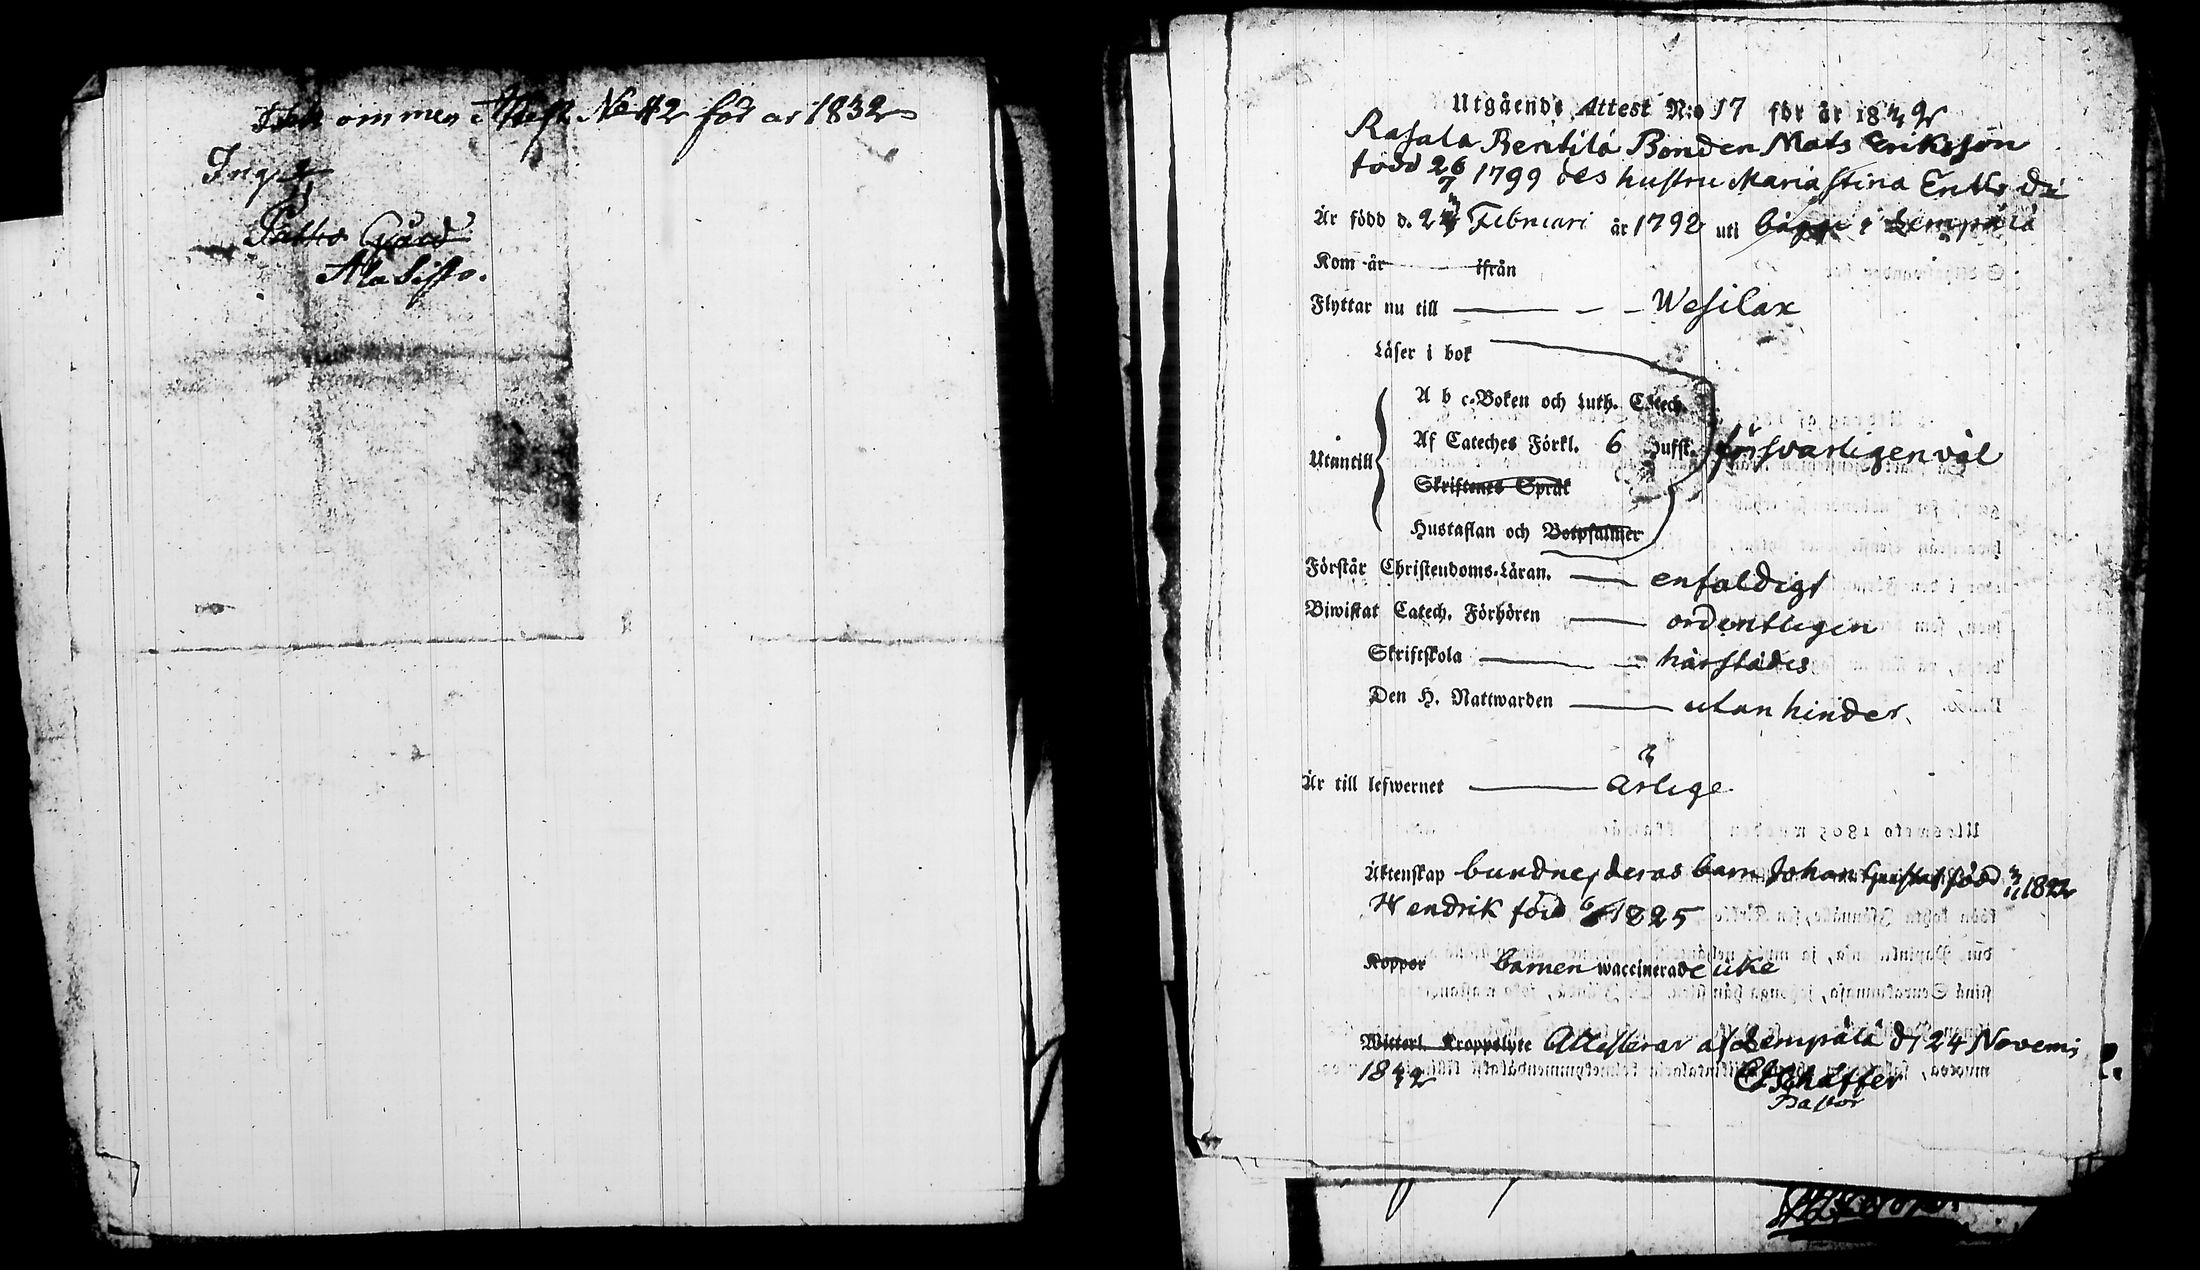 Ink ommen Attest No 42 för år 1832
Inga
Patho Gård
Ala Sisto.
Utgående Attest N:o 17 för år 1832
Rasala Bentilä Bonden Mats Eriksson
född 26/7 1799 des hustru Maria Stina Eriks di
Är född d. 24 Februari år 1792 uti bägge i Lempälä
Kom år ifrån
Flyttar nu till — Wesilax
Läser i bok
A b c-Boken och Luth. Catech.
Utantill Af Cateches Förkl. 6 Hufst. försvarligen väl
Skriftenes Språk
Hustaflan och Botpsalmer
Förstår Christendoms-Läran. — enfaldigt
Biwistat Catech. Förhören — ordentligen
Skriftskola — härstädes
Den H. Nattwarden — utan hinder.
Är till lefwernet — ärlige
Äktenskap bundne, deras barn Johan Gustaf född 1822
Hendrik född 1825
Koppor barnen waccinerade icke
Witterl. Kroppslyte Attesterar af Lempälä d. 24 Novemb
1832 Schäffer
Pastor